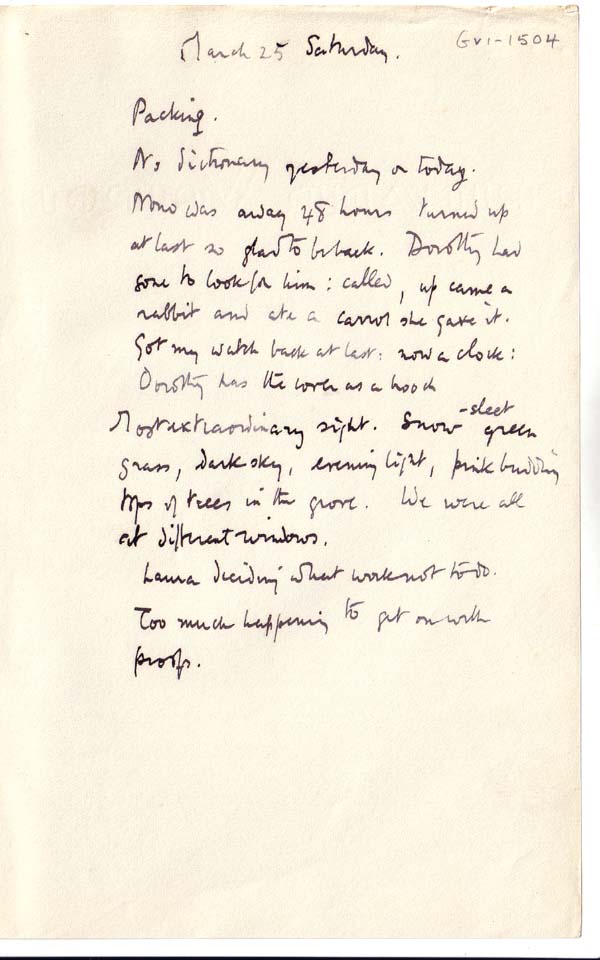 March 25 Saturday.
GV1-1504
Packing.
No dictionary yesterday or today.
Nono was away 48 hours turned up
at last so glad to be back. Dorothy had
gone to look for him: called, up came a
rabbit and ate a carrot she gave it.
Got my watch back at last: now a clock:
Dorothy has the cover as a brooch
Most extraordinary sight. Snow-sleet green
grass, dark sky, evening light, pink budding
tops of trees in the grove. We were all
at different windows.
Laura deciding what work not to do.
Too much happening to get on with
proofs.